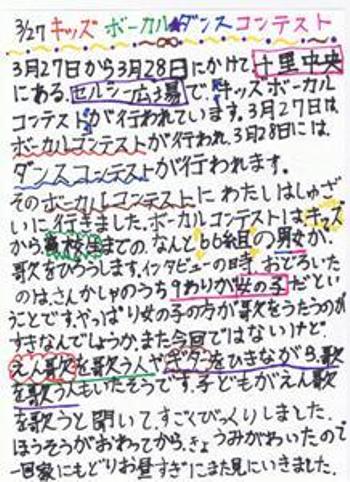 3/27 キッズ ボーカル★ダンス コンテスト
3月27日から3月28日にかけて、千里中央
にある、セルシー広場で、キッズボーカル
コンテストが行われています。3月27日は
ボーカルコンテストが行われ、3月28日には、
ダンスコンテストが行われます。
そのボーカルコンテストに わたしはしゅざ
いに行きました。ボーカルコンテストはキッズ
から高校生までの、なんと66組の男女が、
歌をひろうします。インタビューの時、おどろいた
のは、さんかしゃのうち9わりが女の子だとい
うことです。やっぱり女の子の方が歌をうたうのが
すきなんでしょうか。また今回ではないけど
えん歌を歌う人やギターをひきながら、歌
を歌う人もいたそうです。子どもがえん歌
を歌うと聞いて、すごくびっくりしました。
ほうそうがおわってから、きょうみがわいたので
一回家にもどりお昼すぎにまた見にいきました。